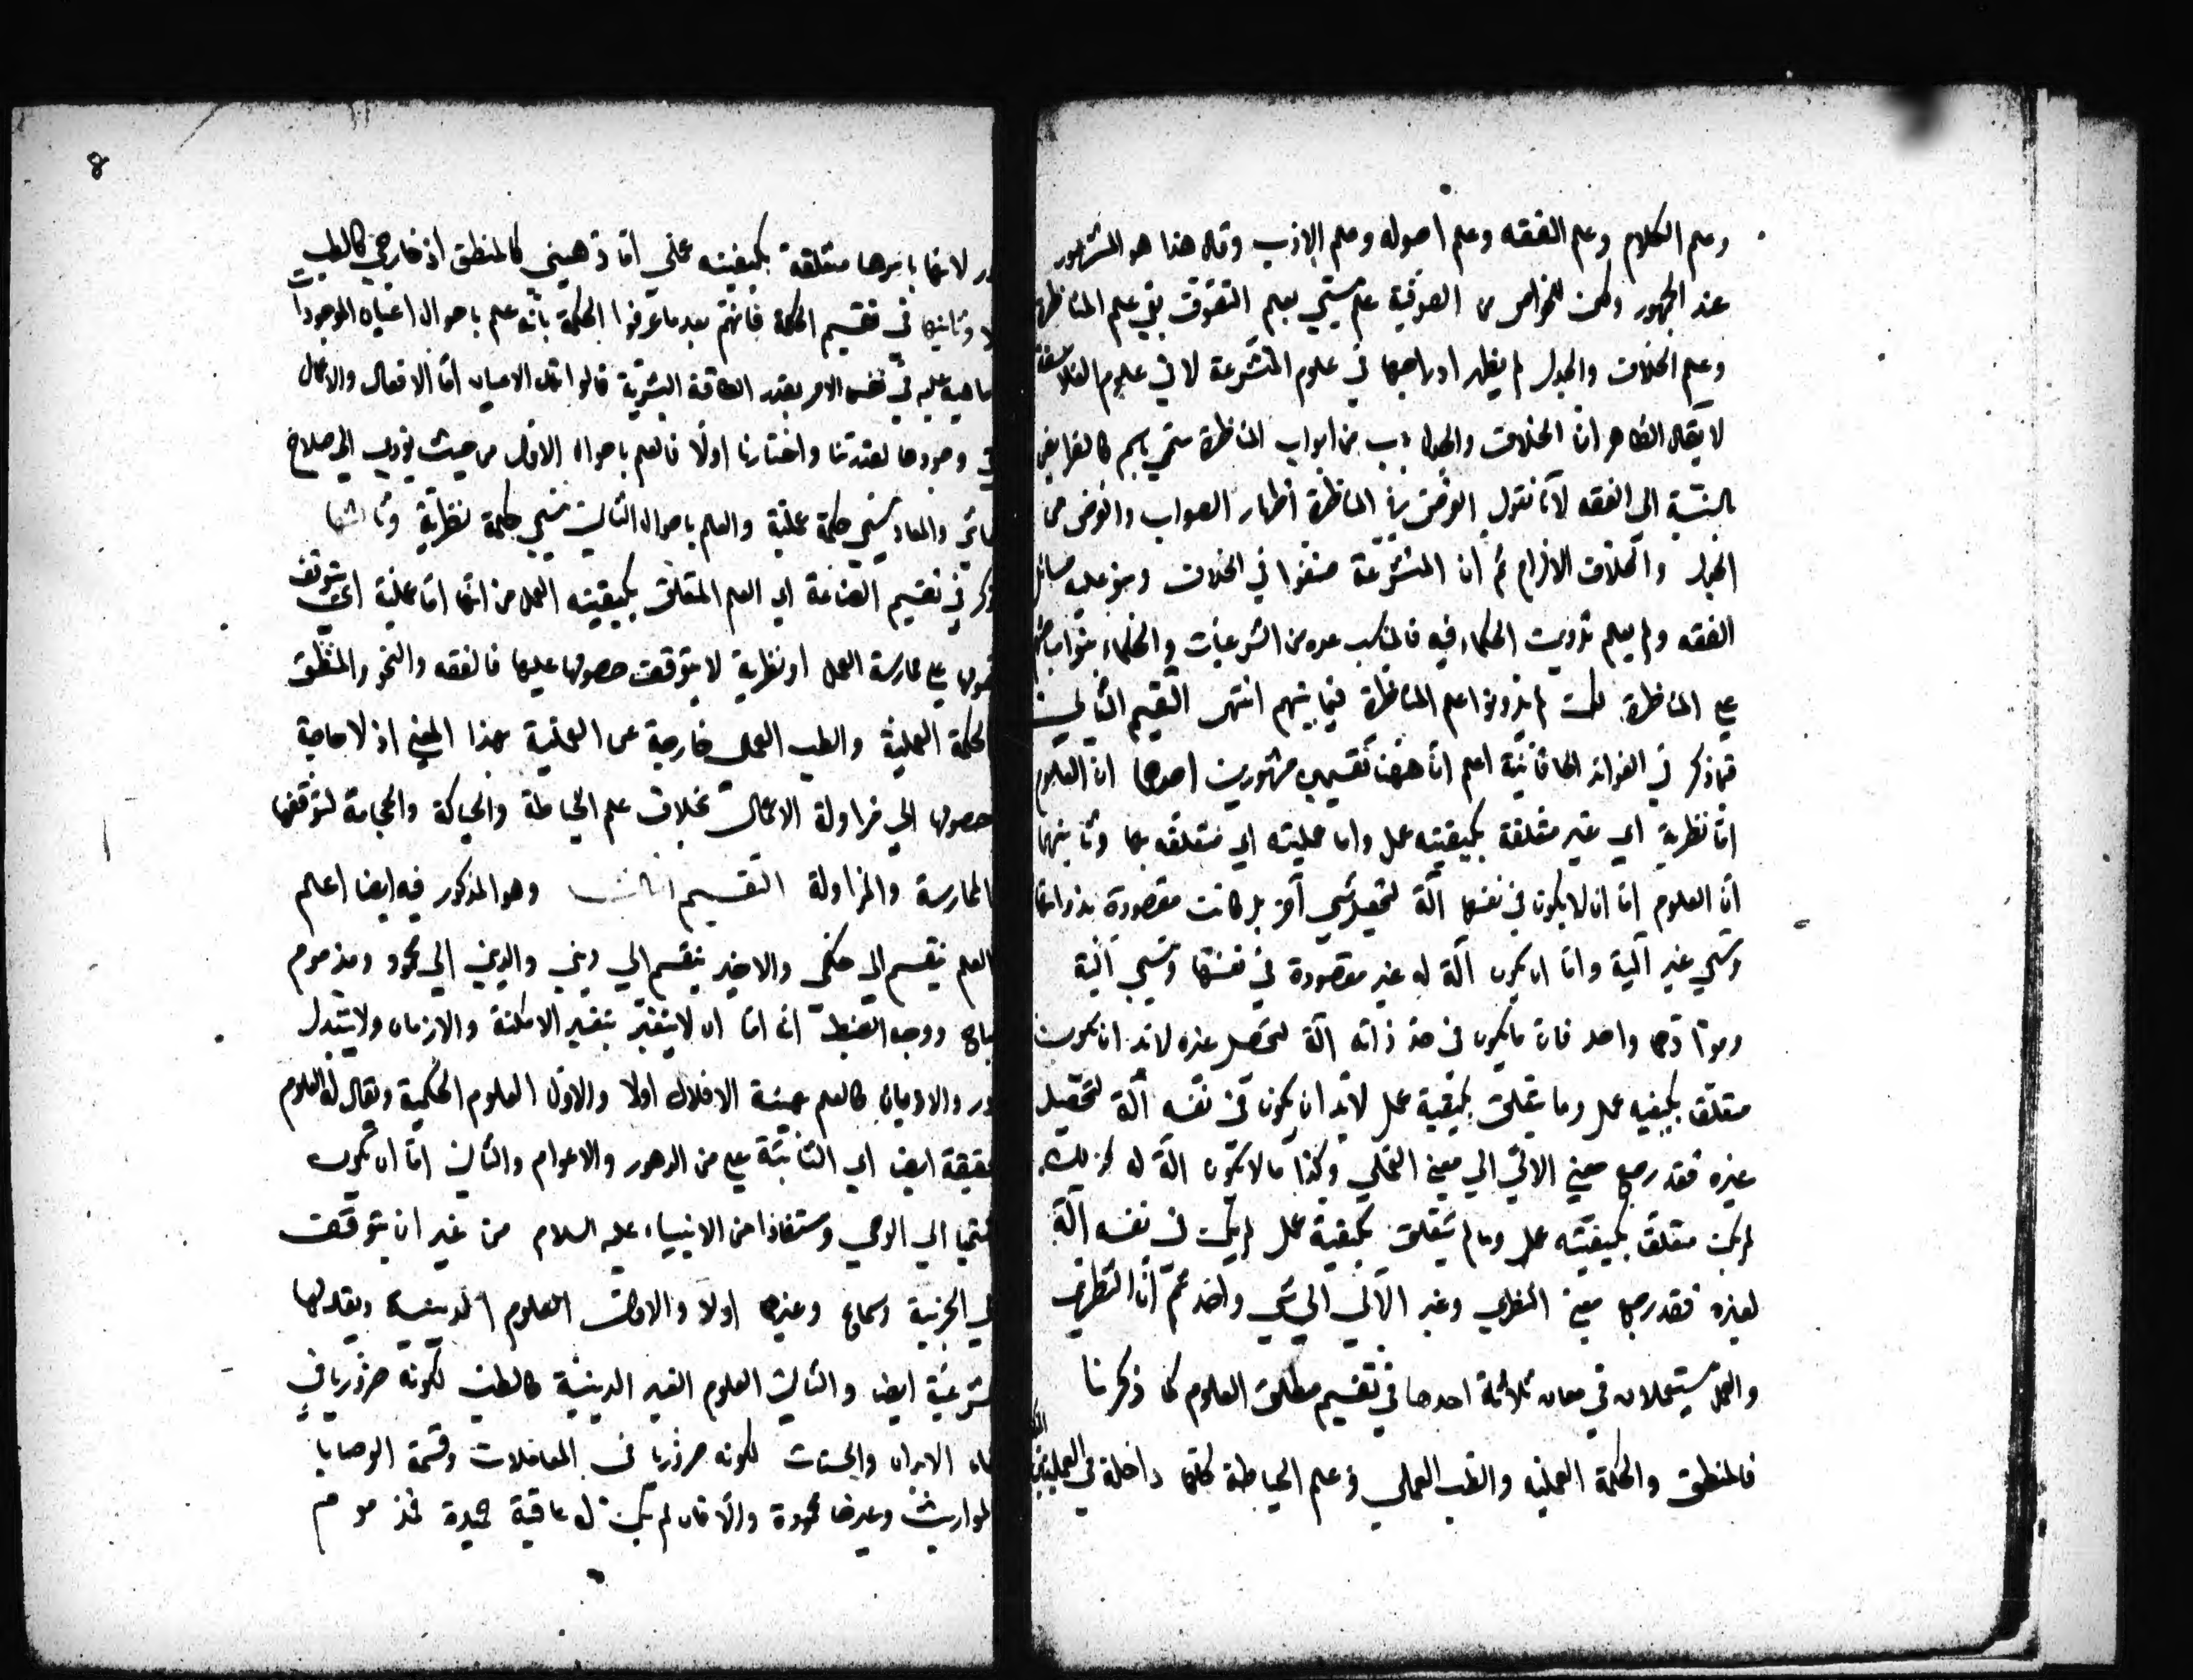 وعلم الكلام وعلم الفقه وعلم اصوله وعلم الادب وقال هذا هو المشهور
عند الجمهور ولكن للخواص من الصوفية علم يسمي بعلم التصوف بقي علم المناظرة
وعلم الخلاف والجدل لم يظهر ادراجهما في علوم المتشرعة لا في علوم الفلاسفة
لا يقال الظاهر ان الخلاف والجدل باب من ابواب المناظرة سمي باسم كالفرايض
بالنسبة الي الفقه لانا نقول الغرض في المناظرة اظهار الصواب والغرض من
الجدل والخلاف الالزام ثم ان المتشرعة صنفوا في الخلاف وبنو عليه مسائل
الفقه ولم يعلم تدوين الحكماء فيه فالمناسب عده من الشرعيات والحكماء بنوا مباحثهم
علي المناظرة لكن لم يدونوا علم المناظرة فيما بينهم انتهى التقسيم الثاني
فما ذكر في الفوائد الخاقانية اعلم ان ههنا تقسيمين مشهورين احدهما ان العلوم
اما نظرية اي غير متعلقة بكيفيته عمل واما عمليته اي متعلقه بها وثانيهما
ان العلوم اما ان لا يكون في نفسها آلة لتحصيل شي آخر بل كانت مقصودة بذواتها
وتسمي غير آلية واما ان يكون آلة له غير مقصودة في نفسها وتسمي آلية
ومؤداهما واحد فان ما يكون في حد ذاته آلة لتحصيل غيره لابد ان يكون
متعلق بكيفيه عمل وما يتعلق بكيفية عمل لابد ان يكون في نفسه آلة لتحصيل
غيره فقد رجع معني الآلي الي معني العملي وكذا ما لا يكون آلة له كذلك
لم يكن متعلق بكيفيته عمل وما لم يتعلق بكيفية عمل لم يكن في نفسه آلة
لغيره فقد رجع معني النظري وغير الآلي الي شي واحد ثم ان النظري
والعملي يستعملان في معان ثلاثة احدها في تقسيم مطلق العلوم كما ذكرنا
فالمنطق والحكمة العمليه والطب العملي وعلم الخياطة كلها داخلة في العملي
لانها باسرها متعلقة بكيفيته عملي اما ذهني كالمنطق او خارجي كالطب
وثانيها في تقسيم الحكمة فانهم بعد ما عرفوا الحكمة بانه علم باحوال اعيان الموجودات
ما هي عليه في نفس الامر بقدر الطاقة البشرية قالوا تلك الاعيان اما الافعال والاعمال
وجودها بقدرتنا واختيارنا اولا فالعلم باحوال الاول من حيث يؤدي الي صلاح
المعاش والمعاد يسمي حكمة عملية والعلم باحوال الثاني يسمي حكمة نظرية وثالثها
ذكر في تقسيم الصناعة اي العلم المتعلق بكيفيته العمل من انها اما عملية اي يتوقف
حصولها علي ممارسة العمل او نظرية لا يتوقف حصولها عليها فالفقه والنحو والمنطق
الحكمة العملية والطب العملي خارجة عن العملية بهذا المعني اذ لا حاجة
حصولها الي مزاولة الاعمال بخلاف علم الخياطة والحياكة والحجامة لتوقفها
الممارسة والمزاولة التقسيم الثالث وهو المذكور فيه ايضا اعلم
العلم ينقسم الي حكمي والاخير ينقسم الي ديني والديني الي محمود ومذموم
مباح ووجه الضبط انه اما ان لا يتغير بتغير الامكنة والازمان ولا يتبدل
والاديان كالعلم بهيئة الافلاك اولا والاول العلوم الحكمية ويقال له العلوم
حقيقة ايضا اي الثابتة علي من الدهور والاعوام والثاني اما ان يكون
منتميا الي الوحي ومستفادا من الانبياء عليه السلام من غير ان يتوقف
الي التجربة وسماع وغيرها اولا والاول العلوم الدينية ويقال لها
شرعية ايضا والثاني العلوم الغير الدينية كالطب لكونه ضروريا في
بقاء الابدان والحساب لكونه ضروريا في المعاملات وقسمة الوصايا
المواريث وغيرها محمودة والا فان لم يكن له عاقبة حميدة فمذموم